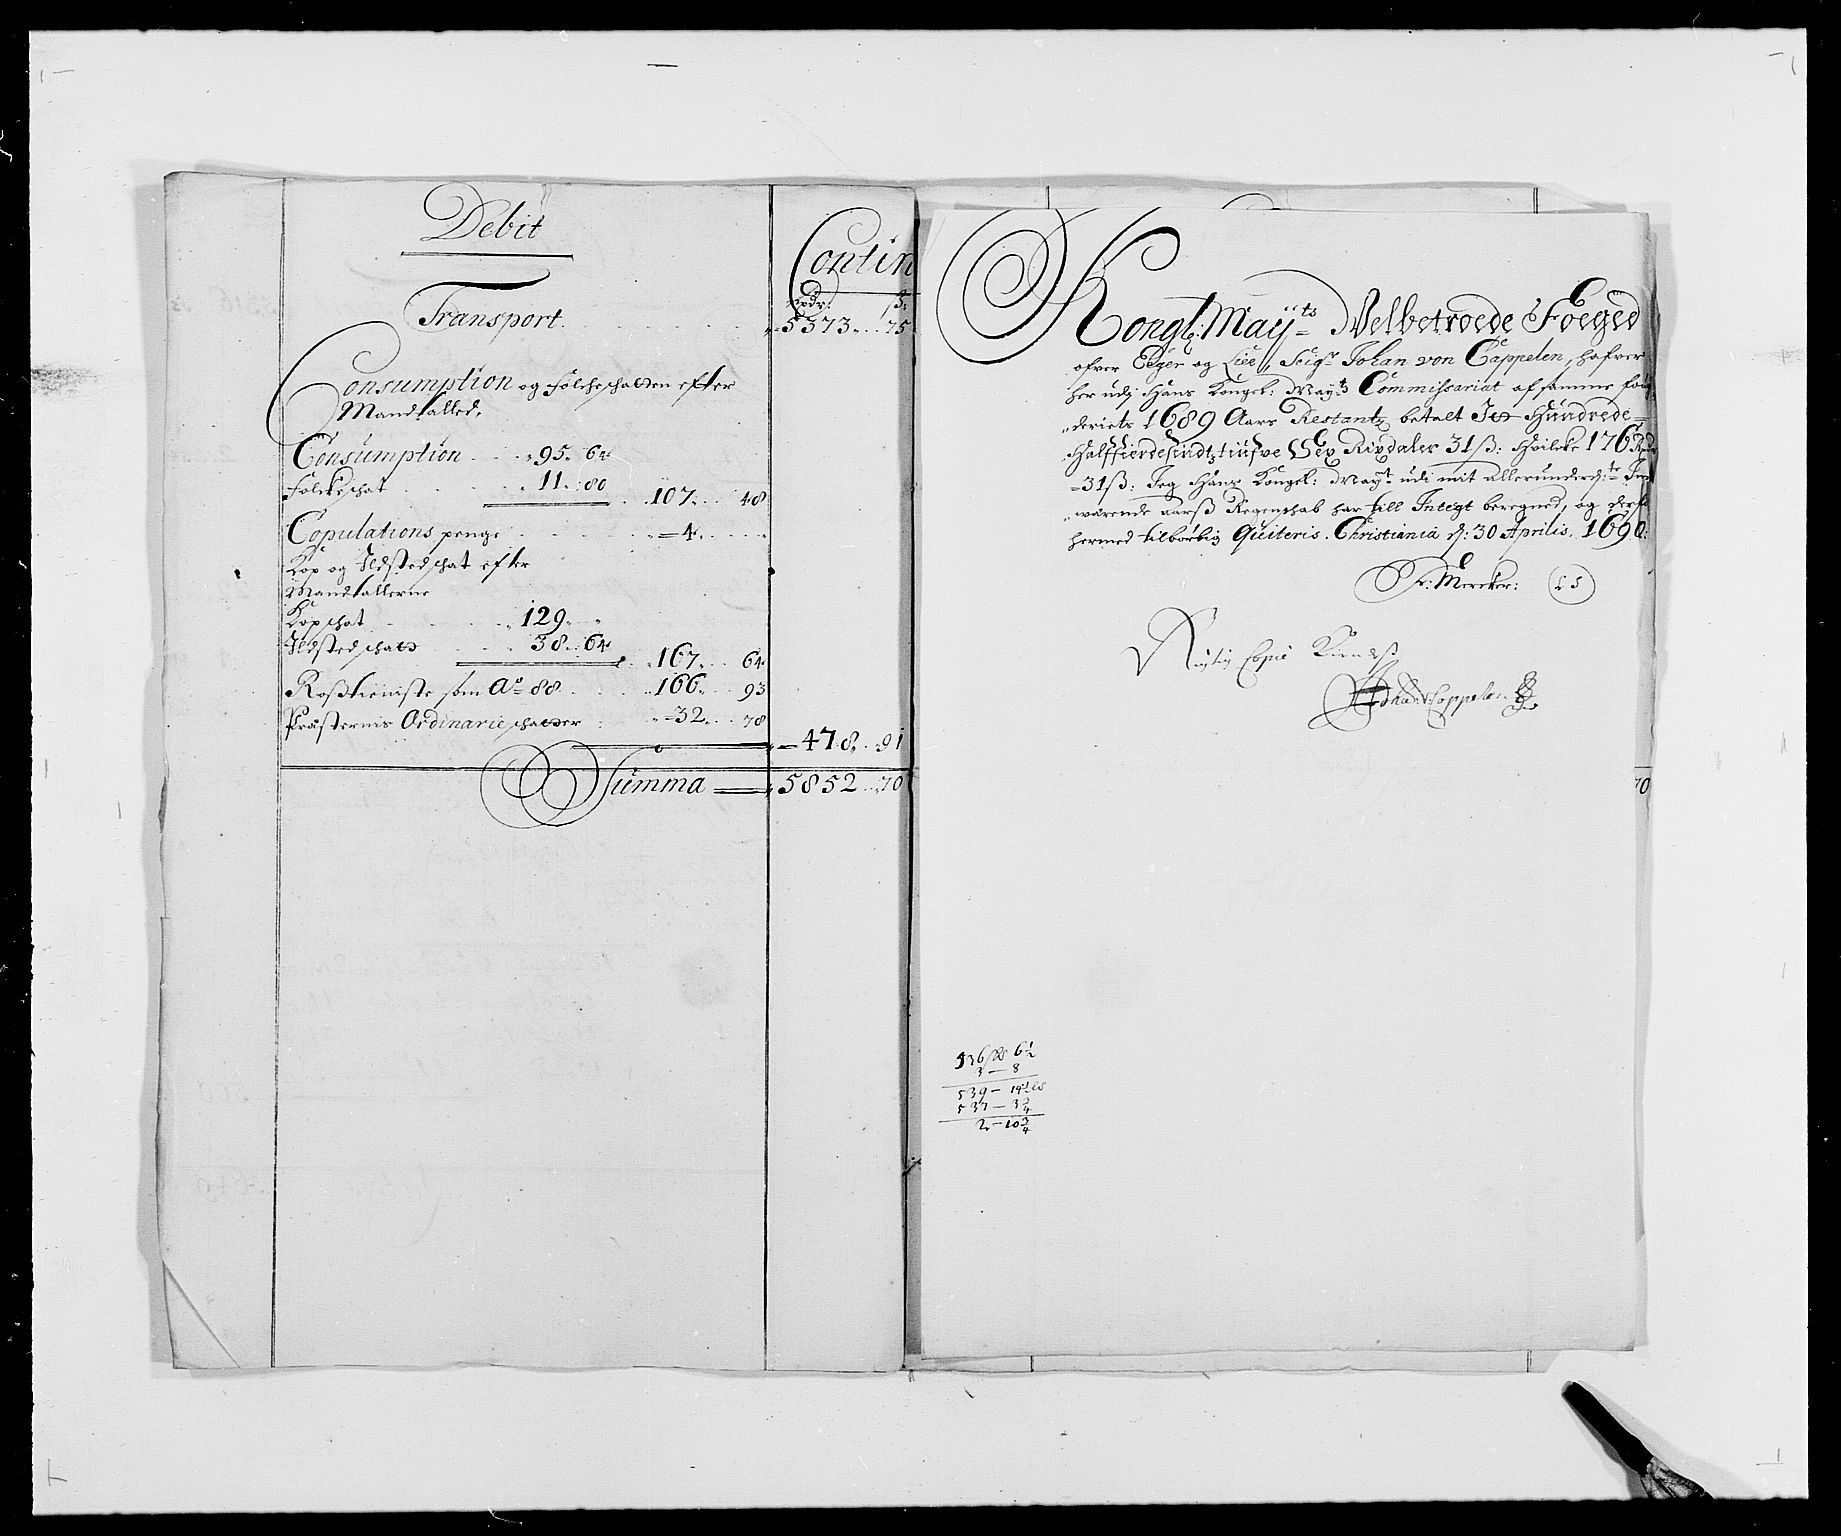 Debit
Contin
Rixdr: ß:
Transport. 5373. 75
Consumption og Folcheschatten efter
Mandtalled,
Consumption 95. 64
Folckeschat 11. 80 107. 48
Copulations penge 4.
Kop og Ildstedschat efter
Mandtallerne
Kopschat 129.
Ildstedschatt 38. 64 167. 64
Roßtieniste som Ao 88 166. 93
Præsternis Ordinarie schatter 32. 78
478. 91
Summa 5852. 70
Kongl: Mayts Velbetroede Foeged
ofver Eiger og Liee, Seigr Johan von Cappelen, hafver
her udj Hans Kongel: Mayts Commissariat af samme fog
deriets 1689 Aars Restantz betalt Jet Hundrede
Halffierdesindtztiufve Sex Rixdaler 31 ß: Hvilcke 176 Rixdr
31 ß: Jeg Hans Kongel: Mayt udi mit allerunderd:te
værende aarß Regenschab har till Integt beregned, og
hermed tilbørlig Quiteris. Christiania d: 30 Aprilis. 1690:
Mercker: LS
Rigtig Copie
Johan v: Cappelen
70
536 6 1/2
3 — 8
539 — 14 1/2
537 — 3 3/4
2 — 10 3/4